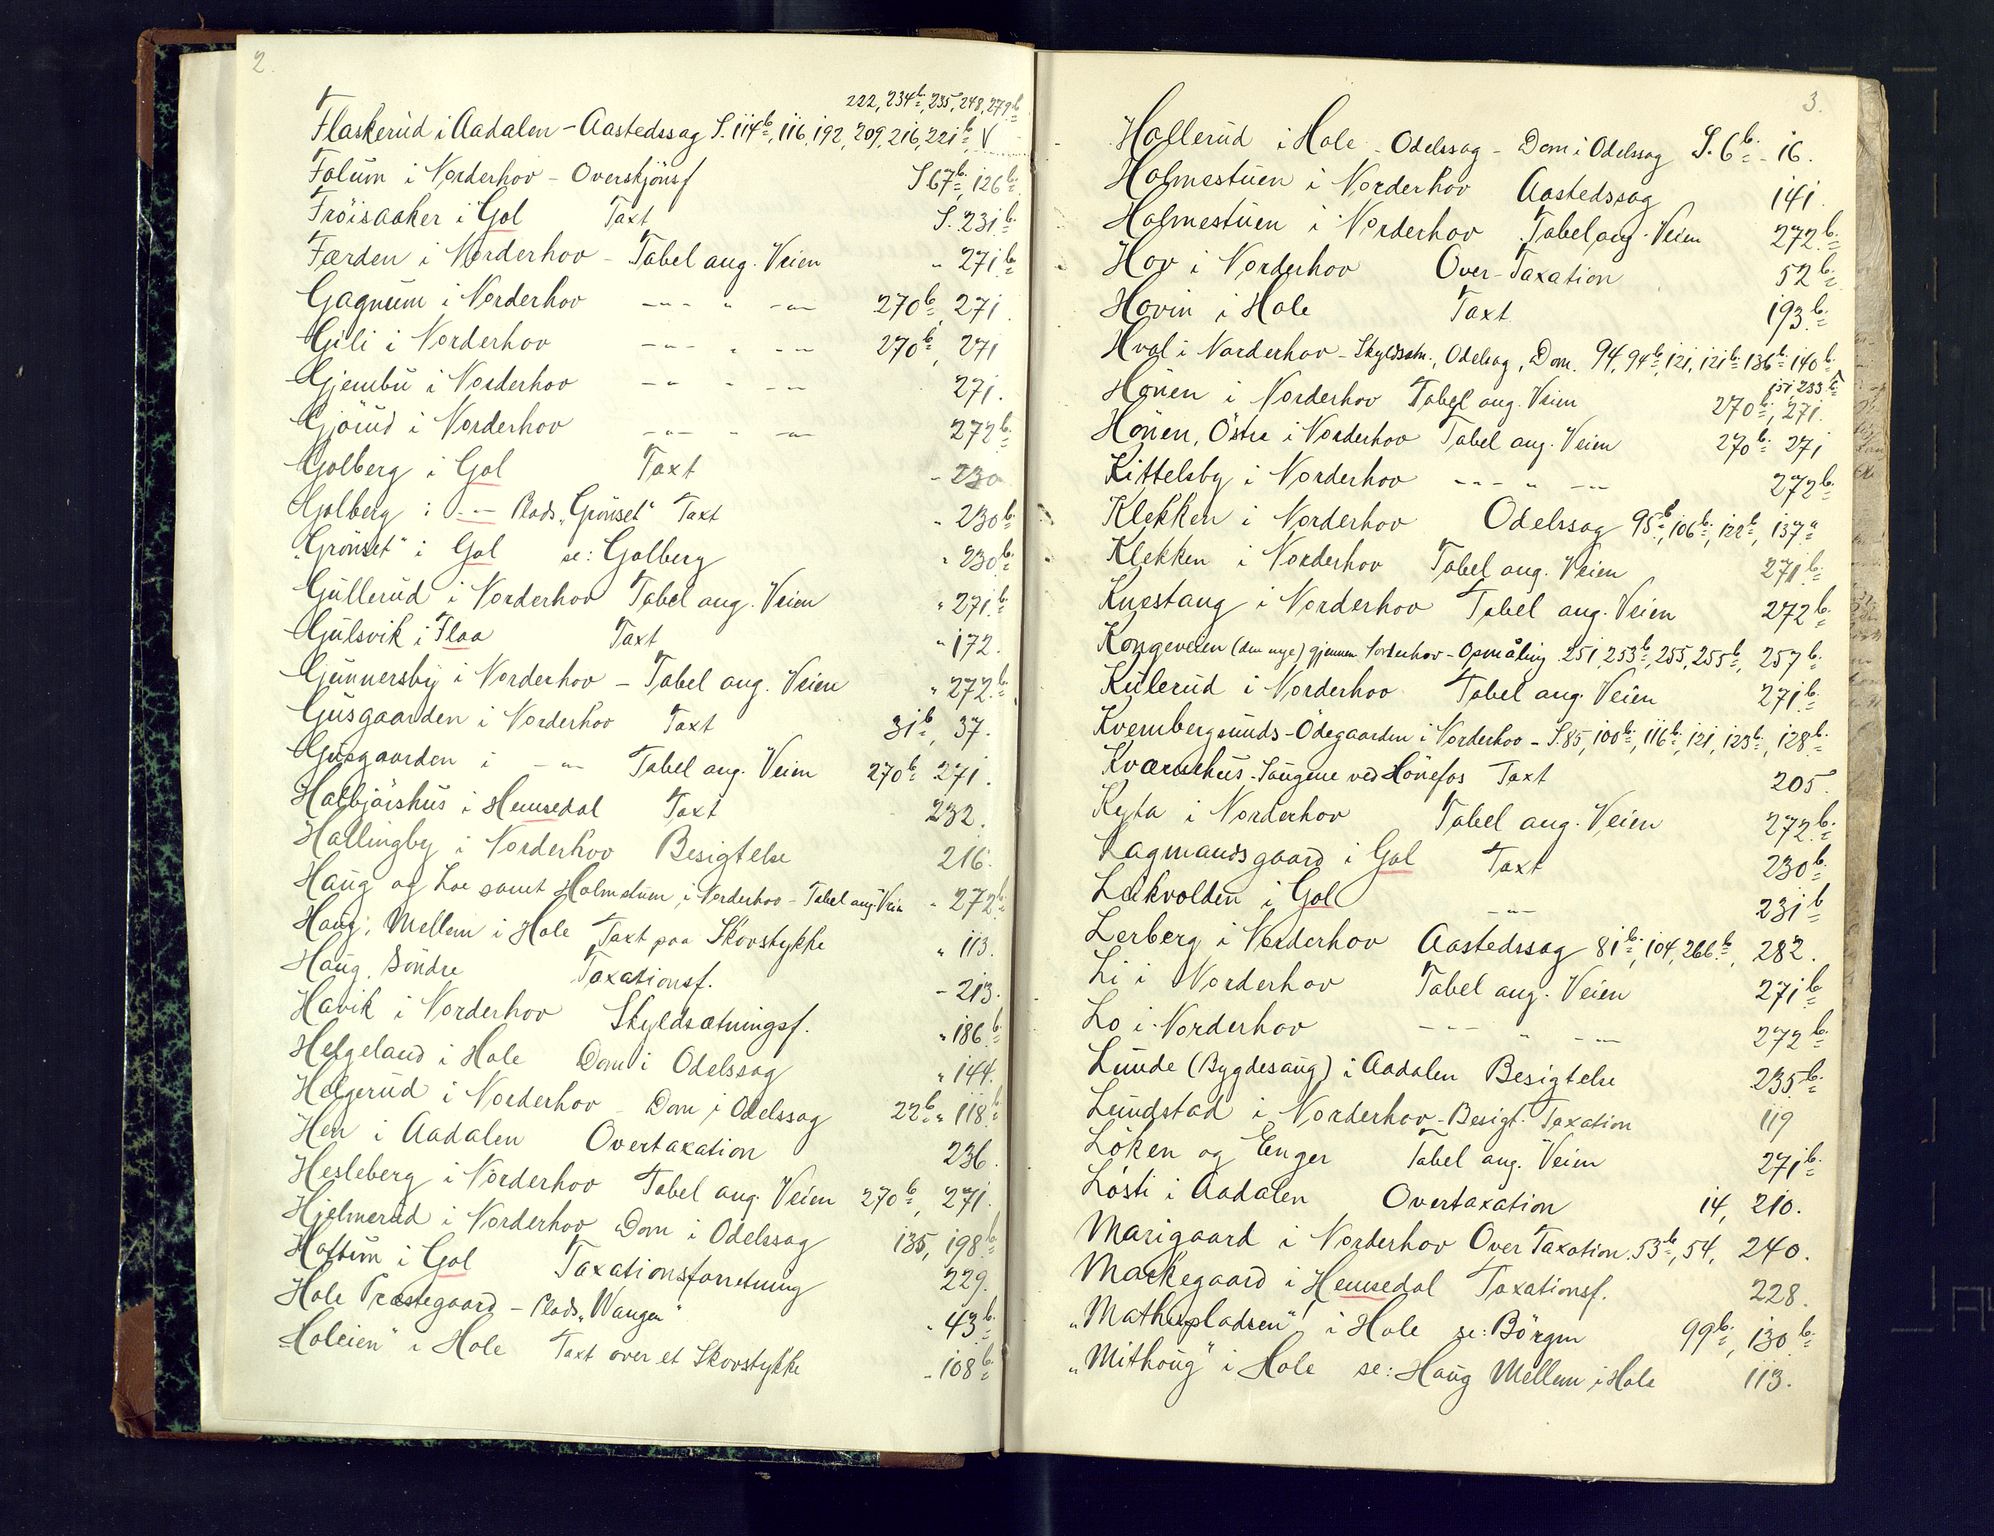 2.
222, 234b, 235, 248, 279b
Flaskerud i Aadalen - Aastedssag S. 114b, 116, 192, 209, 216, 221b, V
Folum i Norderhov - Overskjönsf S 67b, 126b
Fröisaaker i Gol Taxt S. 231b
Færden i Norderhov - Tabel ang. Veien " 271b
Gagnum i Norderhov -"- " -"- 270b, 271.
Gili i Norderhov -"- " -"- 270b, 271
Gjembu i Norderhov -"- " -"- 271.
Gjörud i Norderhov -"- " -"- 272b
Golberg i Gol Taxt - 230
Golberg i -"- Plads "Grönset" Taxt " 230b
"Grönset" i Gol se: Golberg " 230b
Gullerud i Norderhov Tabel ang. Veien " 271b
Gulsvik i Flaa Taxt " 172.
Gunnersby i Norderhov - Tabel ang. Veien " 272b
Gusgaarden i Norderhov Taxt 31b, 37.
Gusgaarden i -"- Tabel ang. Veien 270b, 271.
Halbjörshus i Hemsedal Taxt 232.
Hallingby i Norderhov Besigtelse 216.
Haug og Loe samt Holmstuen i Norderhov - Tabel ang. Veien " 272b
Haug, Mellem i Hole Taxt paa Skovstykke " 113.
Haug, Söndre Taxationsf. - 213.
Havik i Norderhov Skyldsætningsf. " 186b
Helgeland i Hole Dom i Odelssag " 144.
Helgerud i Norderhov - Dom i Odelssag 22b " 118b
Hen i Aadalen Overtaxation 236.
Hesleberg i Norderhov Tabel ang. Veien 270b, 271.
Hjelmerud i Norderhov Dom i Odelssag 135, 198b
Hoftun i Gol Taxationsforretning 229.
Hole Præstegaard - Plads "Wangen" " 43b
"Holeien" i Hole Taxt over et Skovstykke - 108b
3.
Hollerud i Hole - Odelssag - Dom i Odelssag S. 6b - 16.
Holmestuen i Norderhov Aastedssag 141.
Holmestuen i Norderhov Tabel ang. Veien 272b
Hov i Norderhov Over-Taxation 52b
Hovin i Hole Taxt 193b
Hval i Norderhov - Skyldsætn., Odelssag, Dom. 94, 94b, 121, 121b, 136b, 140b
151, 233b
Hönen i Norderhov Tabel ang. Veien 270b, 271.
Hönen, Östre i Norderhov Tabel ang. Veien 270b 271
Kittelsby i Norderhov -"- " -"- 272b
Klekken i Norderhov Odelssag 95b, 106b, 122b, 137a
Klekken i Norderhov Tabel ang. Veien 271b
Knestang i Norderhov Tabel ang. Veien 272b
Kongeveien (den nye) gjennem Norderhov - Opmåling 251, 253b, 255, 255b, 257b
Kulerud i Norderhov Tabel ang. Veien 271b
Kvembergsunds-Ödegaarden i Norderhov - S. 85, 100b, 116b, 121, 123b, 128b
Kværnhus-Saugene ved Hönefos Taxt 205.
Kyta i Norderhov Tabel ang. Veien 272b
Lagmandsgaard i Gol Taxt 230b
Leikvolden i Gol -"- 231b
Lerberg i Norderhov Aastedssag 81b, 104, 266b, 282.
Li i Norderhov Tabel ang. Veien 271b
Lo i Norderhov -"- " -"- 272b
Lunde (Bygdesaug) i Aadalen Besigtelse 235b
Lundstad i Norderhov - Besigt. Taxation 119
Löken og Enger Tabel ang. Veien 271b
Lösti i Aadalen Overtaxation 14, 210.
Marigaard i Norderhov Over Taxation. 53b, 54, 240.
Markegaard i Hemsedal Taxationsf. 228.
"Mathispladsen" i Hole se: Börgen 99b, 130b
"Mithoug" i Hole se: Haug Mellem i Hole 113.